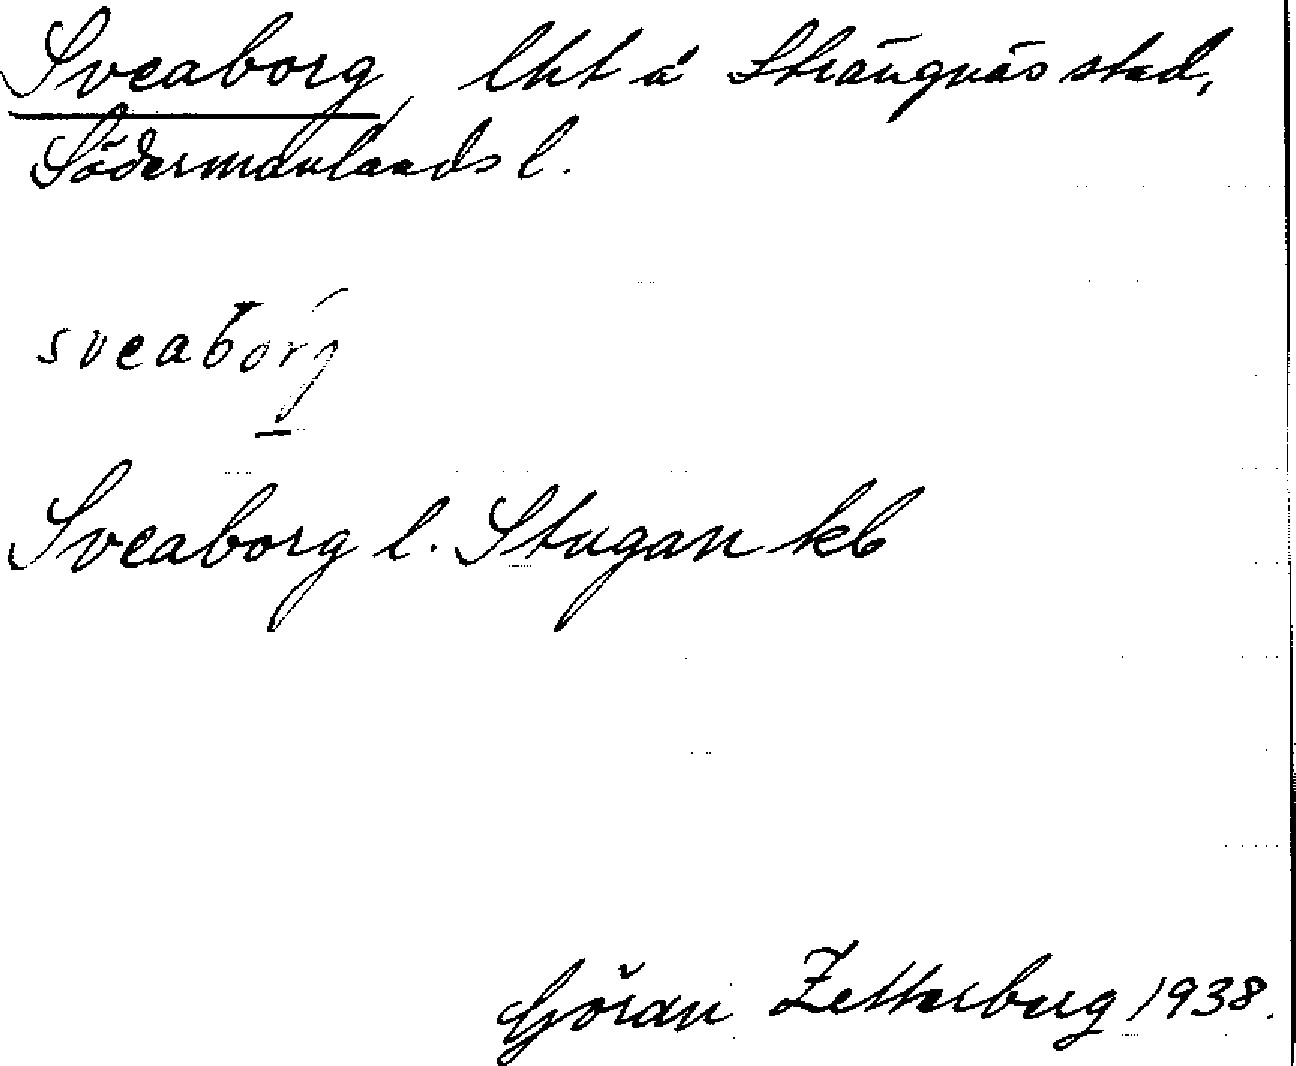 Sveaborg, lht å Strängnäs stad,
Södermanlands l.
sveabörg
Sveaborg l. Stugan kb
Göran Zetterberg 1938.